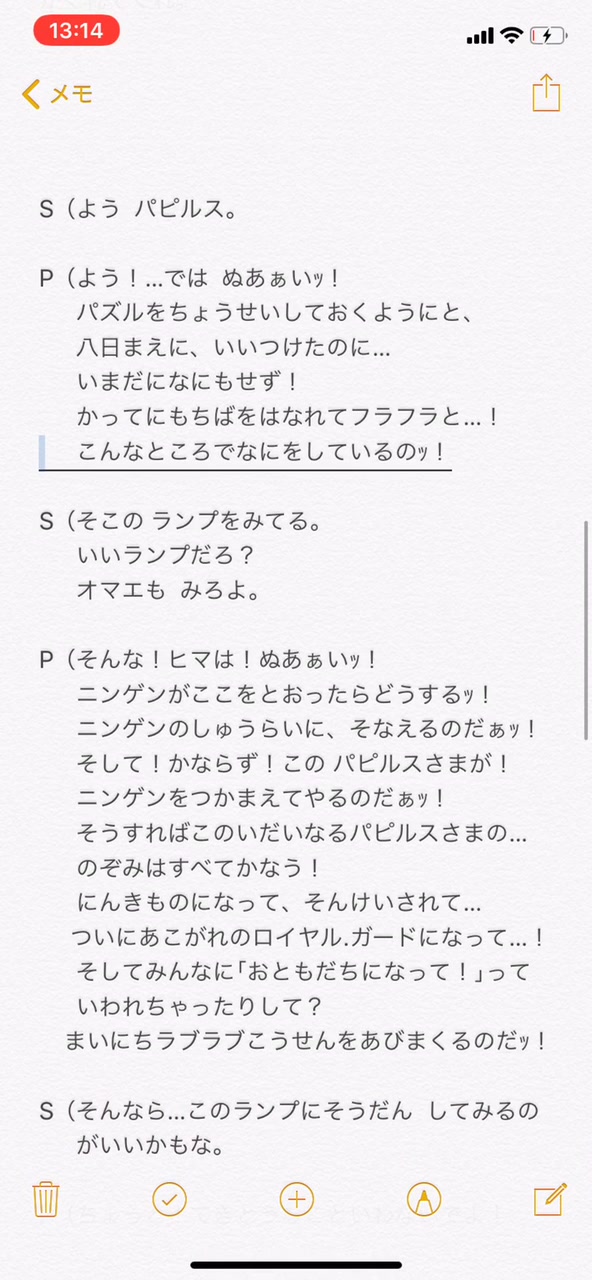 13:14
メモ
S（よう パピルス。
P（よう！…では ぬあぁいｯ！
パズルをちょうせいしておくようにと、
八日まえに、いいつけたのに…
いまだになにもせず！
かってにもちばをはなれてフラフラと…！
こんなところでなにをしているのｯ！
S（そこの ランプをみてる。
いいランプだろ？
オマエも みろよ。
P（そんな！ヒマは！ぬあぁいｯ！
ニンゲンがここをとおったらどうするｯ！
ニンゲンのしゅうらいに、そなえるのだぁｯ！
そして！かならず！この パピルスさまが！
ニンゲンをつかまえてやるのだぁｯ！
そうすればこのいだいなるパピルスさまの…
のぞみはすべてかなう！
にんきものになって、そんけいされて…
ついにあこがれのロイヤル.ガードになって…！
そしてみんなに｢おともだちになって！｣って
いわれちゃったりして？
まいにちラブラブこうせんをあびまくるのだｯ！
S（そんなら…このランプにそうだん してみるの
がいいかもな。